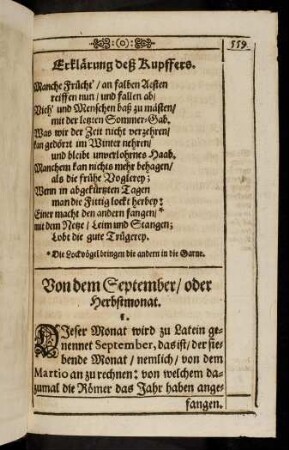 559.
Erklärung deß Kupffers.
Manche Frücht'/ an falben Aesten
reiffen nun/ und fallen ab/
Vieh' und Menschen baß zu mästen/
mit der letzten Sommer-Gab.
Was wir der Zeit nicht verzehren/
kan gedört im Winter nehren/
und bleibt unverlohrnes Haab.
Manchem kan nichts mehr behagen/
als die frühe Voglerey;
Wenn in abgekürtzten Tagen
man die Fittig lockt herbey:
Einer macht den andern fangen/*
mit dem Netze/ Leim und Stangen;
Lobt die gute Trügerey.
* Die Lockvögel bringen die andern in die Garne.
Von dem September/ oder
Herbstmonat.
1.
DIeser Monat wird zu Latein ge-
nennet September, das ist/ der sie-
bende Monat/ nemlich/ von dem
Martio an zu rechnen: von welchem da-
zumal die Römer das Jahr haben ange-
fangen.